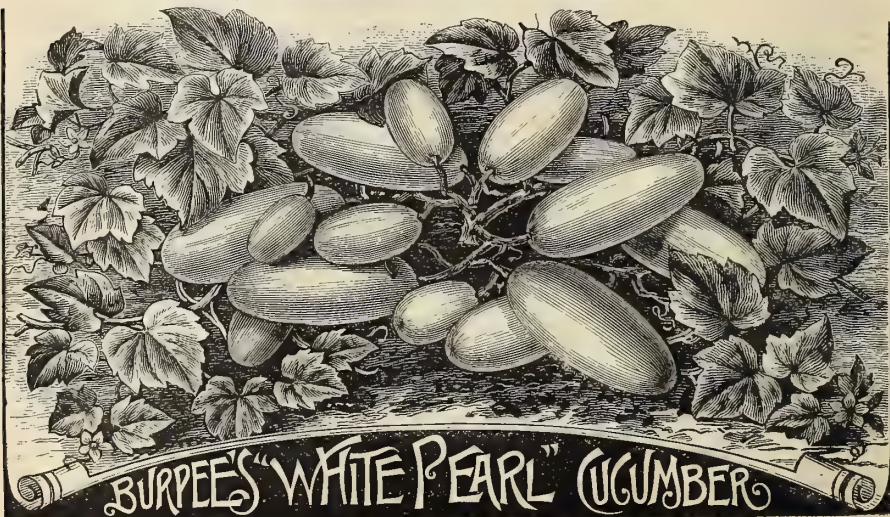 BURPEE'S "WHITE PEARL" CUCUMBER